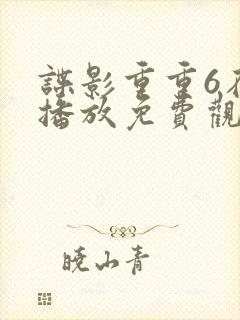 諜影重重6在
播放免費觀
曉山青